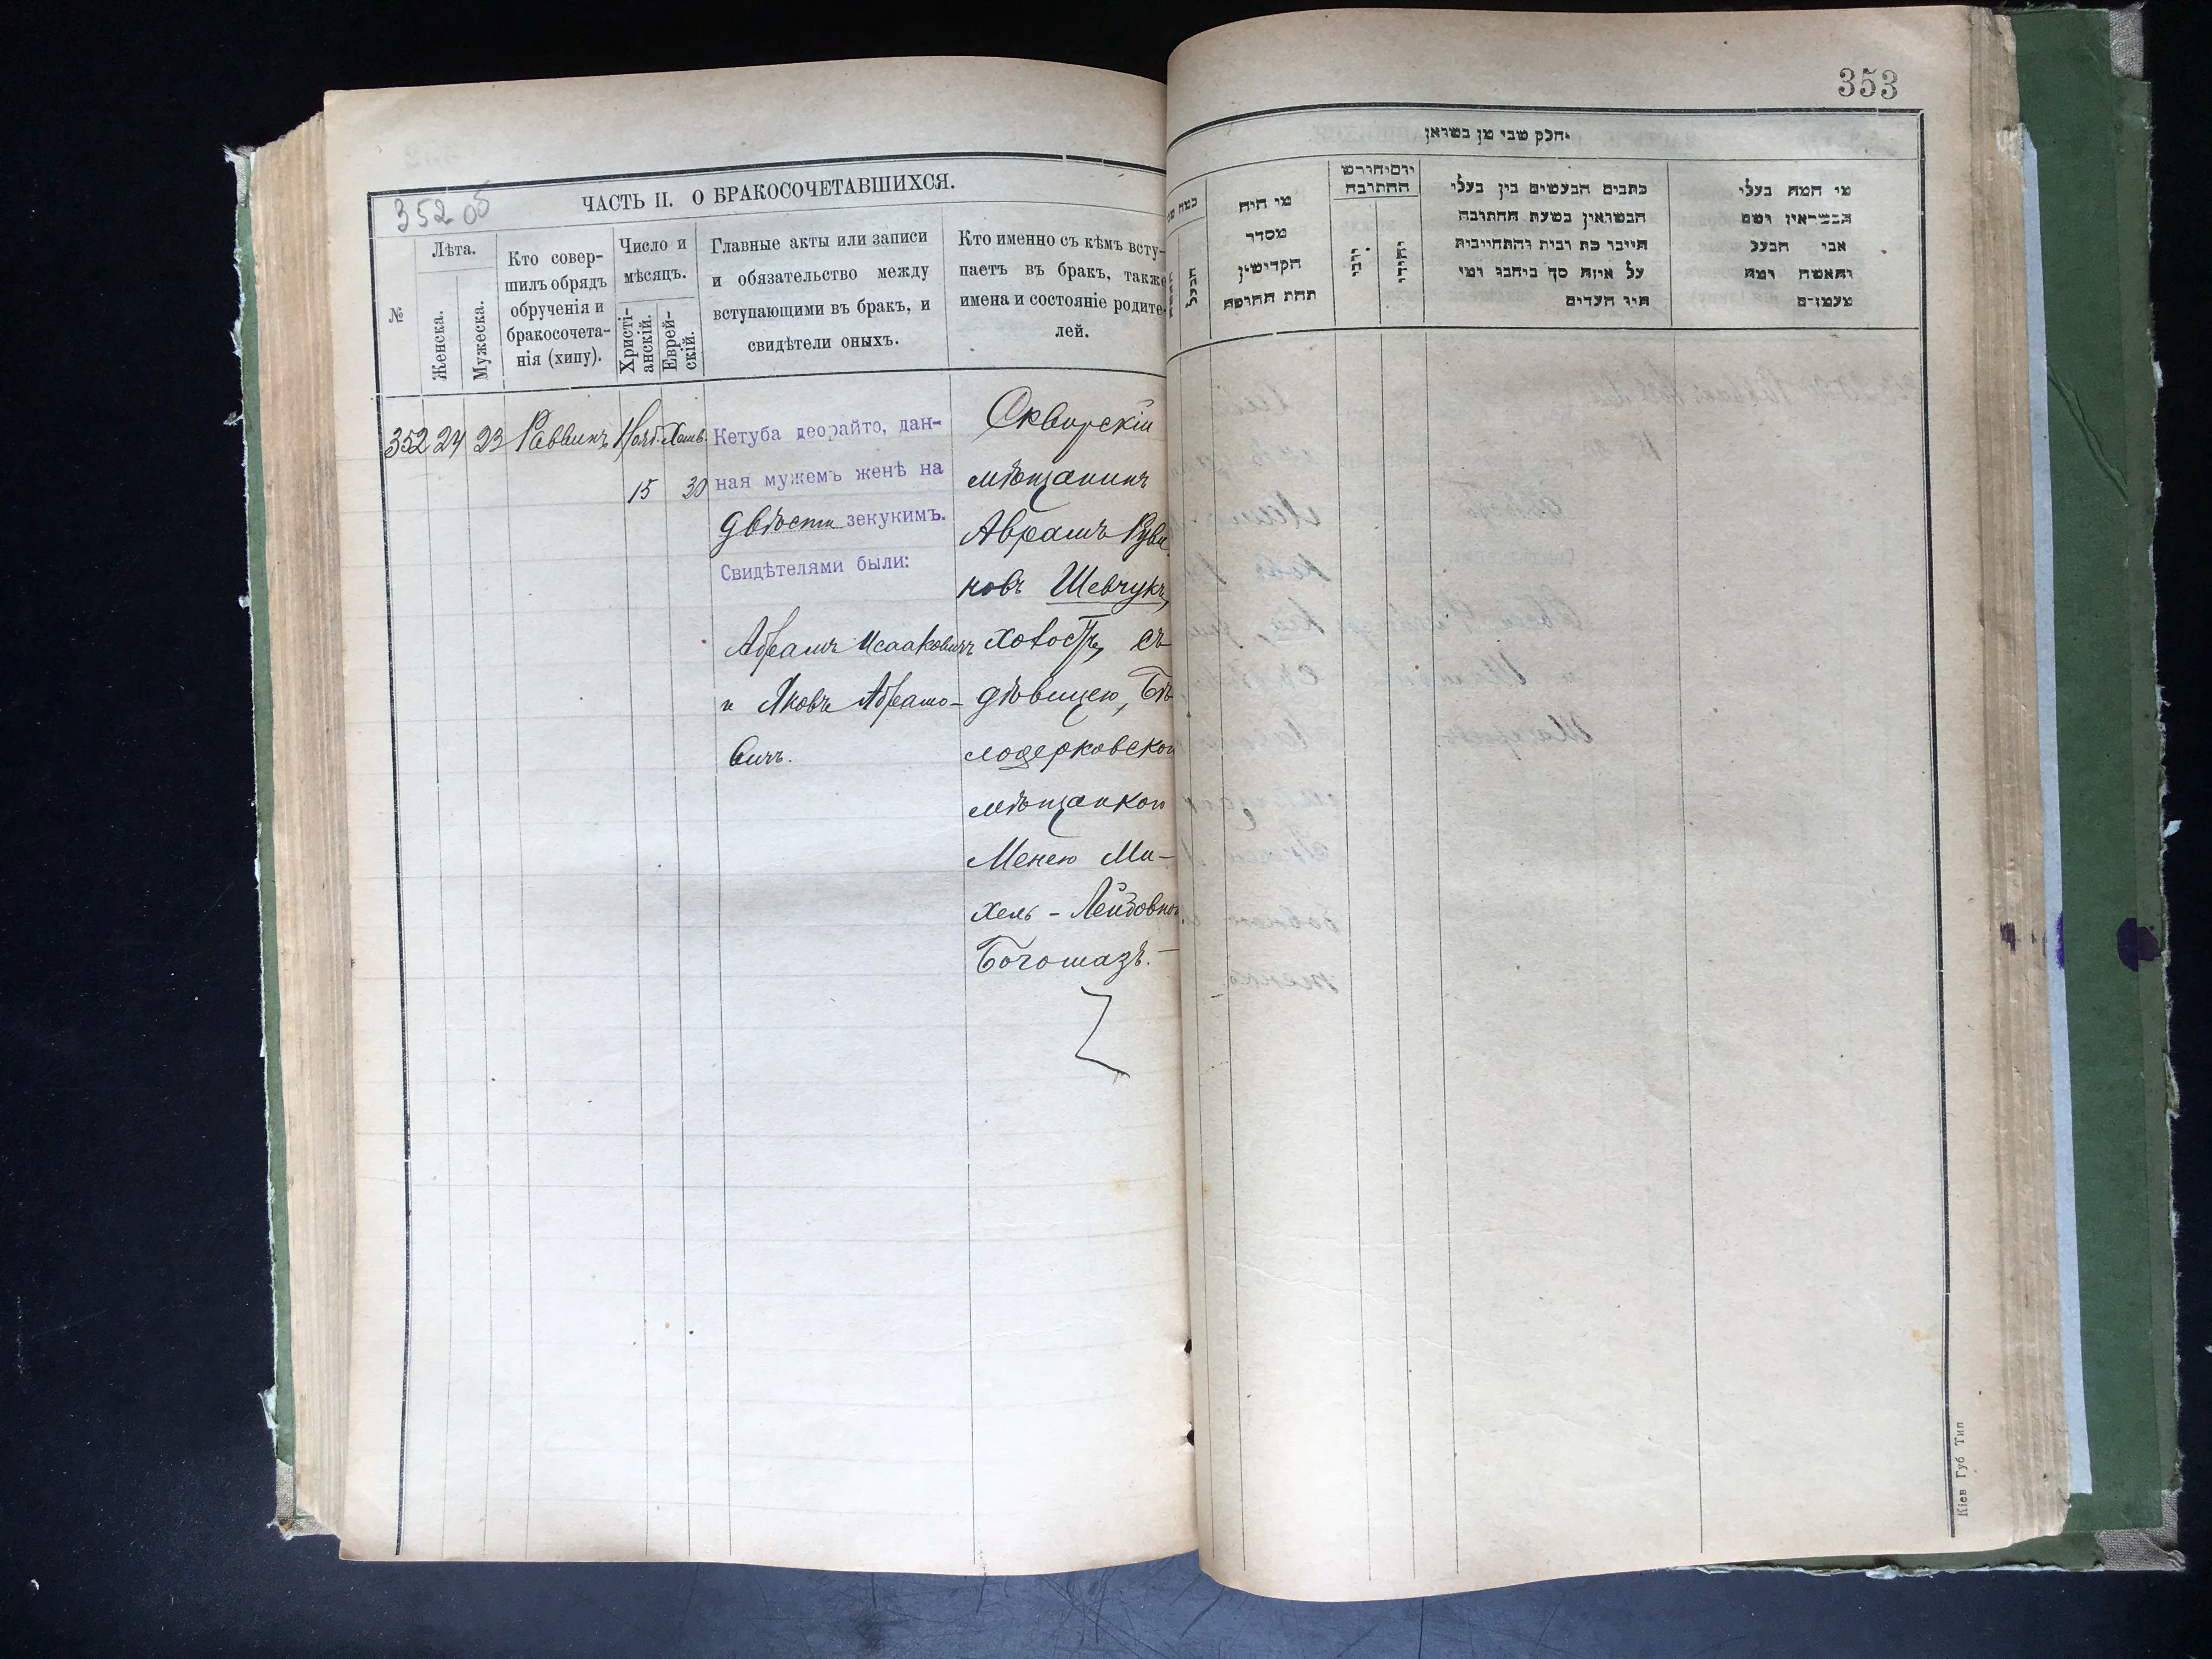 352 об
ЧАСТЬ II. О БРАКОСОЧЕТАВШИХСЯ.
№
Лѣта.
Женска.
Мужеска.
Кто совер-
шилъ обрядъ
обрученія и
бракосочета-
нія (хипу).
Число и
мѣсяцъ.
Христі-
анскій.
Еврей-
скій.
Главные акты или записи
и обязательство между
вступающими въ бракъ, и
свидѣтели оныхъ.
Кто именно съ кѣмъ всту-
паетъ въ бракъ, также
имена и состояніе родите-
лей.
352 24 23 Раввинъ Нояб. Хешв.
15 30
Кетуба деорайто, дан-
ная мужемъ женѣ на
двѣсти зекукимъ.
Свидѣтелями были:
Абрамъ Исааковичъ
и Яковъ Абрамо-
вичъ.
Сквирскій
мѣщанинъ
Аврамъ Руви
новъ Шевчукъ,
холостъ, съ
дѣвицею, Бѣ
лоцерковской
мѣщанкой
Менею Ми-
хель-Лейбовной
Богомазъ.
353
יחלק שבי מן בשואן
מי היה
מסדר
הקדישין
תחת החופה
יום יחורש
החתובה
כתבים הנעשים בין בעלי
הנשואין בשעת החתובה
חייבו כת רבית והתחייבית
על איזה סך ביחבו ומי
היו העדים
מי המה בעלי
הנשואין ושם
אבי הבעל
והאשה ומה
מעמדם
Кіев Губ Тип